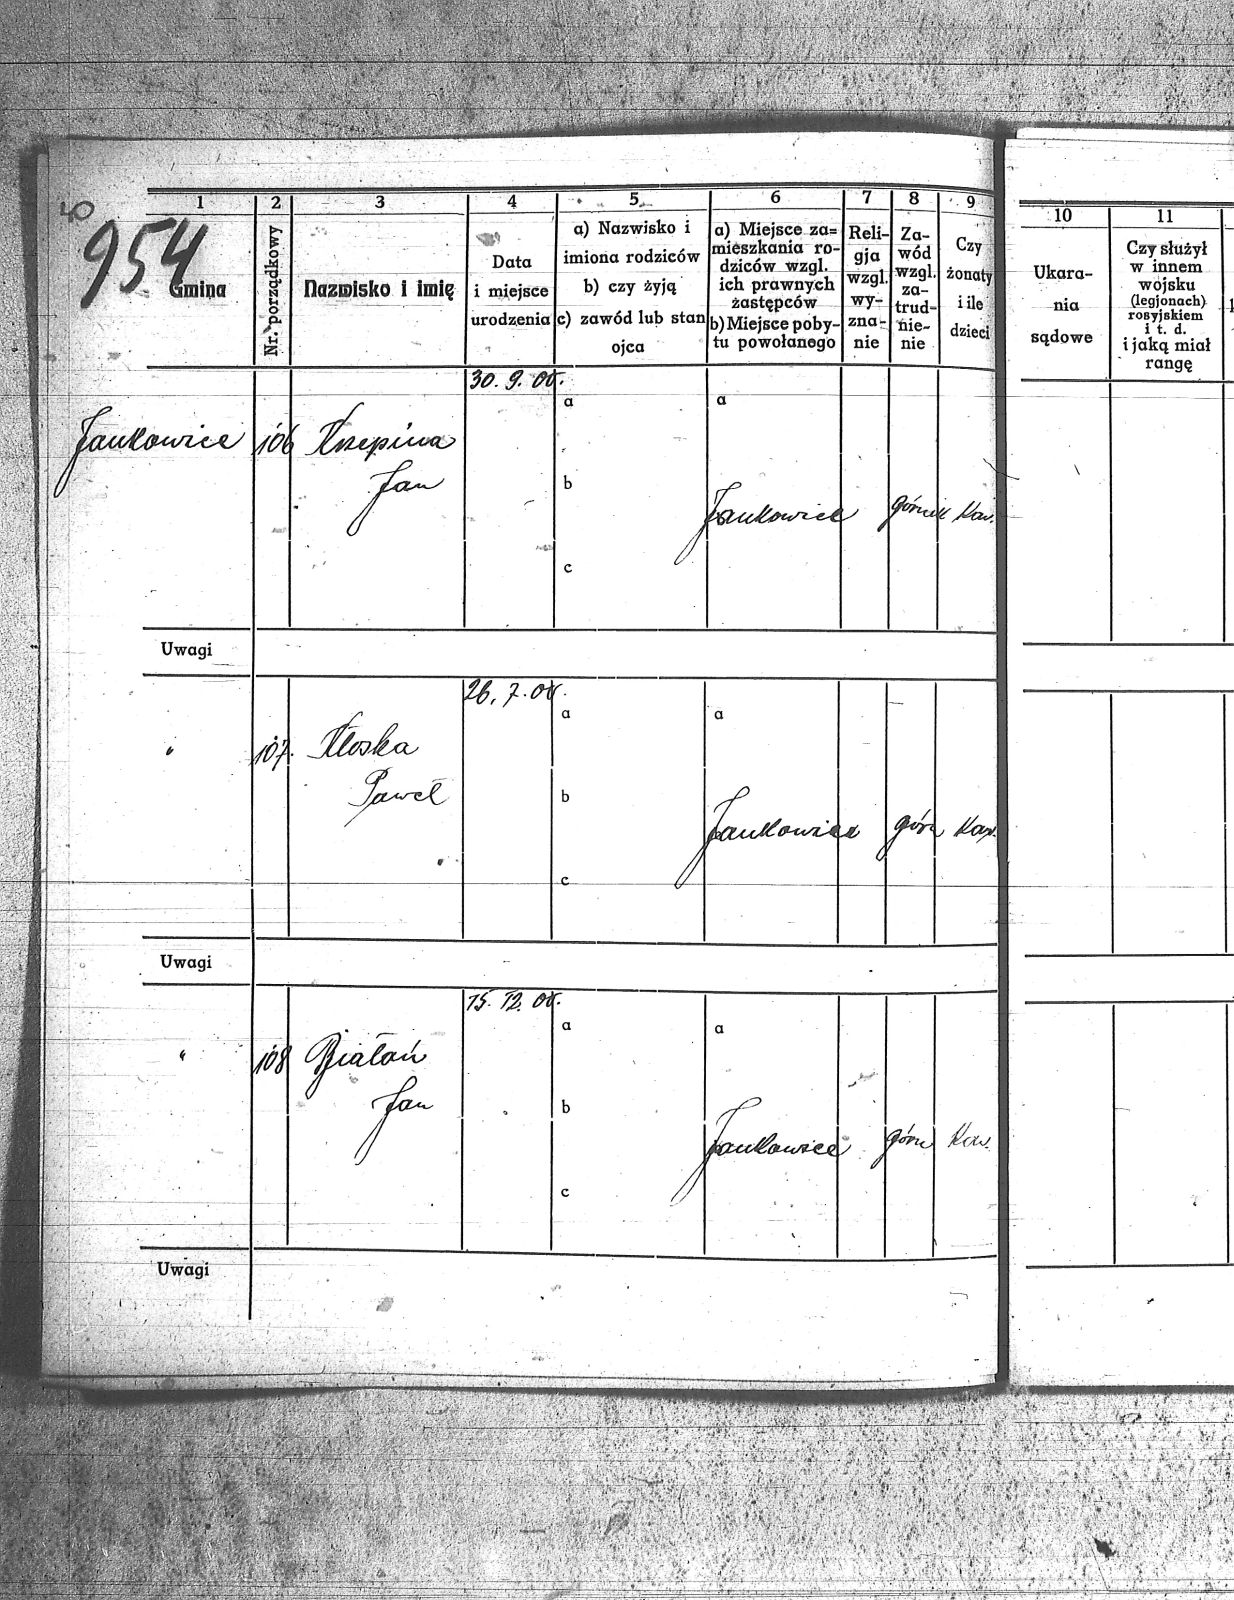 954
1
2
3
4
5
6
7
8
9
10
11
Gmina
Nr. porządkowy
Nazwisko i imię
Data
i miejsce
urodzenia
a) Nazwisko i
imiona rodziców
b) czy żyją
c) zawód lub stan
ojca
a) Miejsce za=
mieszkania ro-
dziców wzgl.
ich prawnych
zastępców
b) Miejsce poby-
tu powołanego
Reli-
gja
wzgl.
wy-
zna-
nie
Za-
wód
wzgl.
za-
trud-
nie-
nie
Czy
żonaty
i ile
dzieci
Ukara-
nia
sądowe
Czy służył
w innem
wojsku
(legjonach)
rosyjskiem
i t. d.
i jaką miał
rangę
30. 9. 00.
a
a
Jankowice 106 Krzepina
Jan
b
Jankowice górnik Kaw.
c
Uwagi
26. 7. 00.
a
a
" 107. Kloska
Paweł
b
Jankowice górn Kaw.
c
Uwagi
15. 12. 00.
a
a
" 108 Białoń
Jan
b
Jankowice górn Kaw.
c
Uwagi